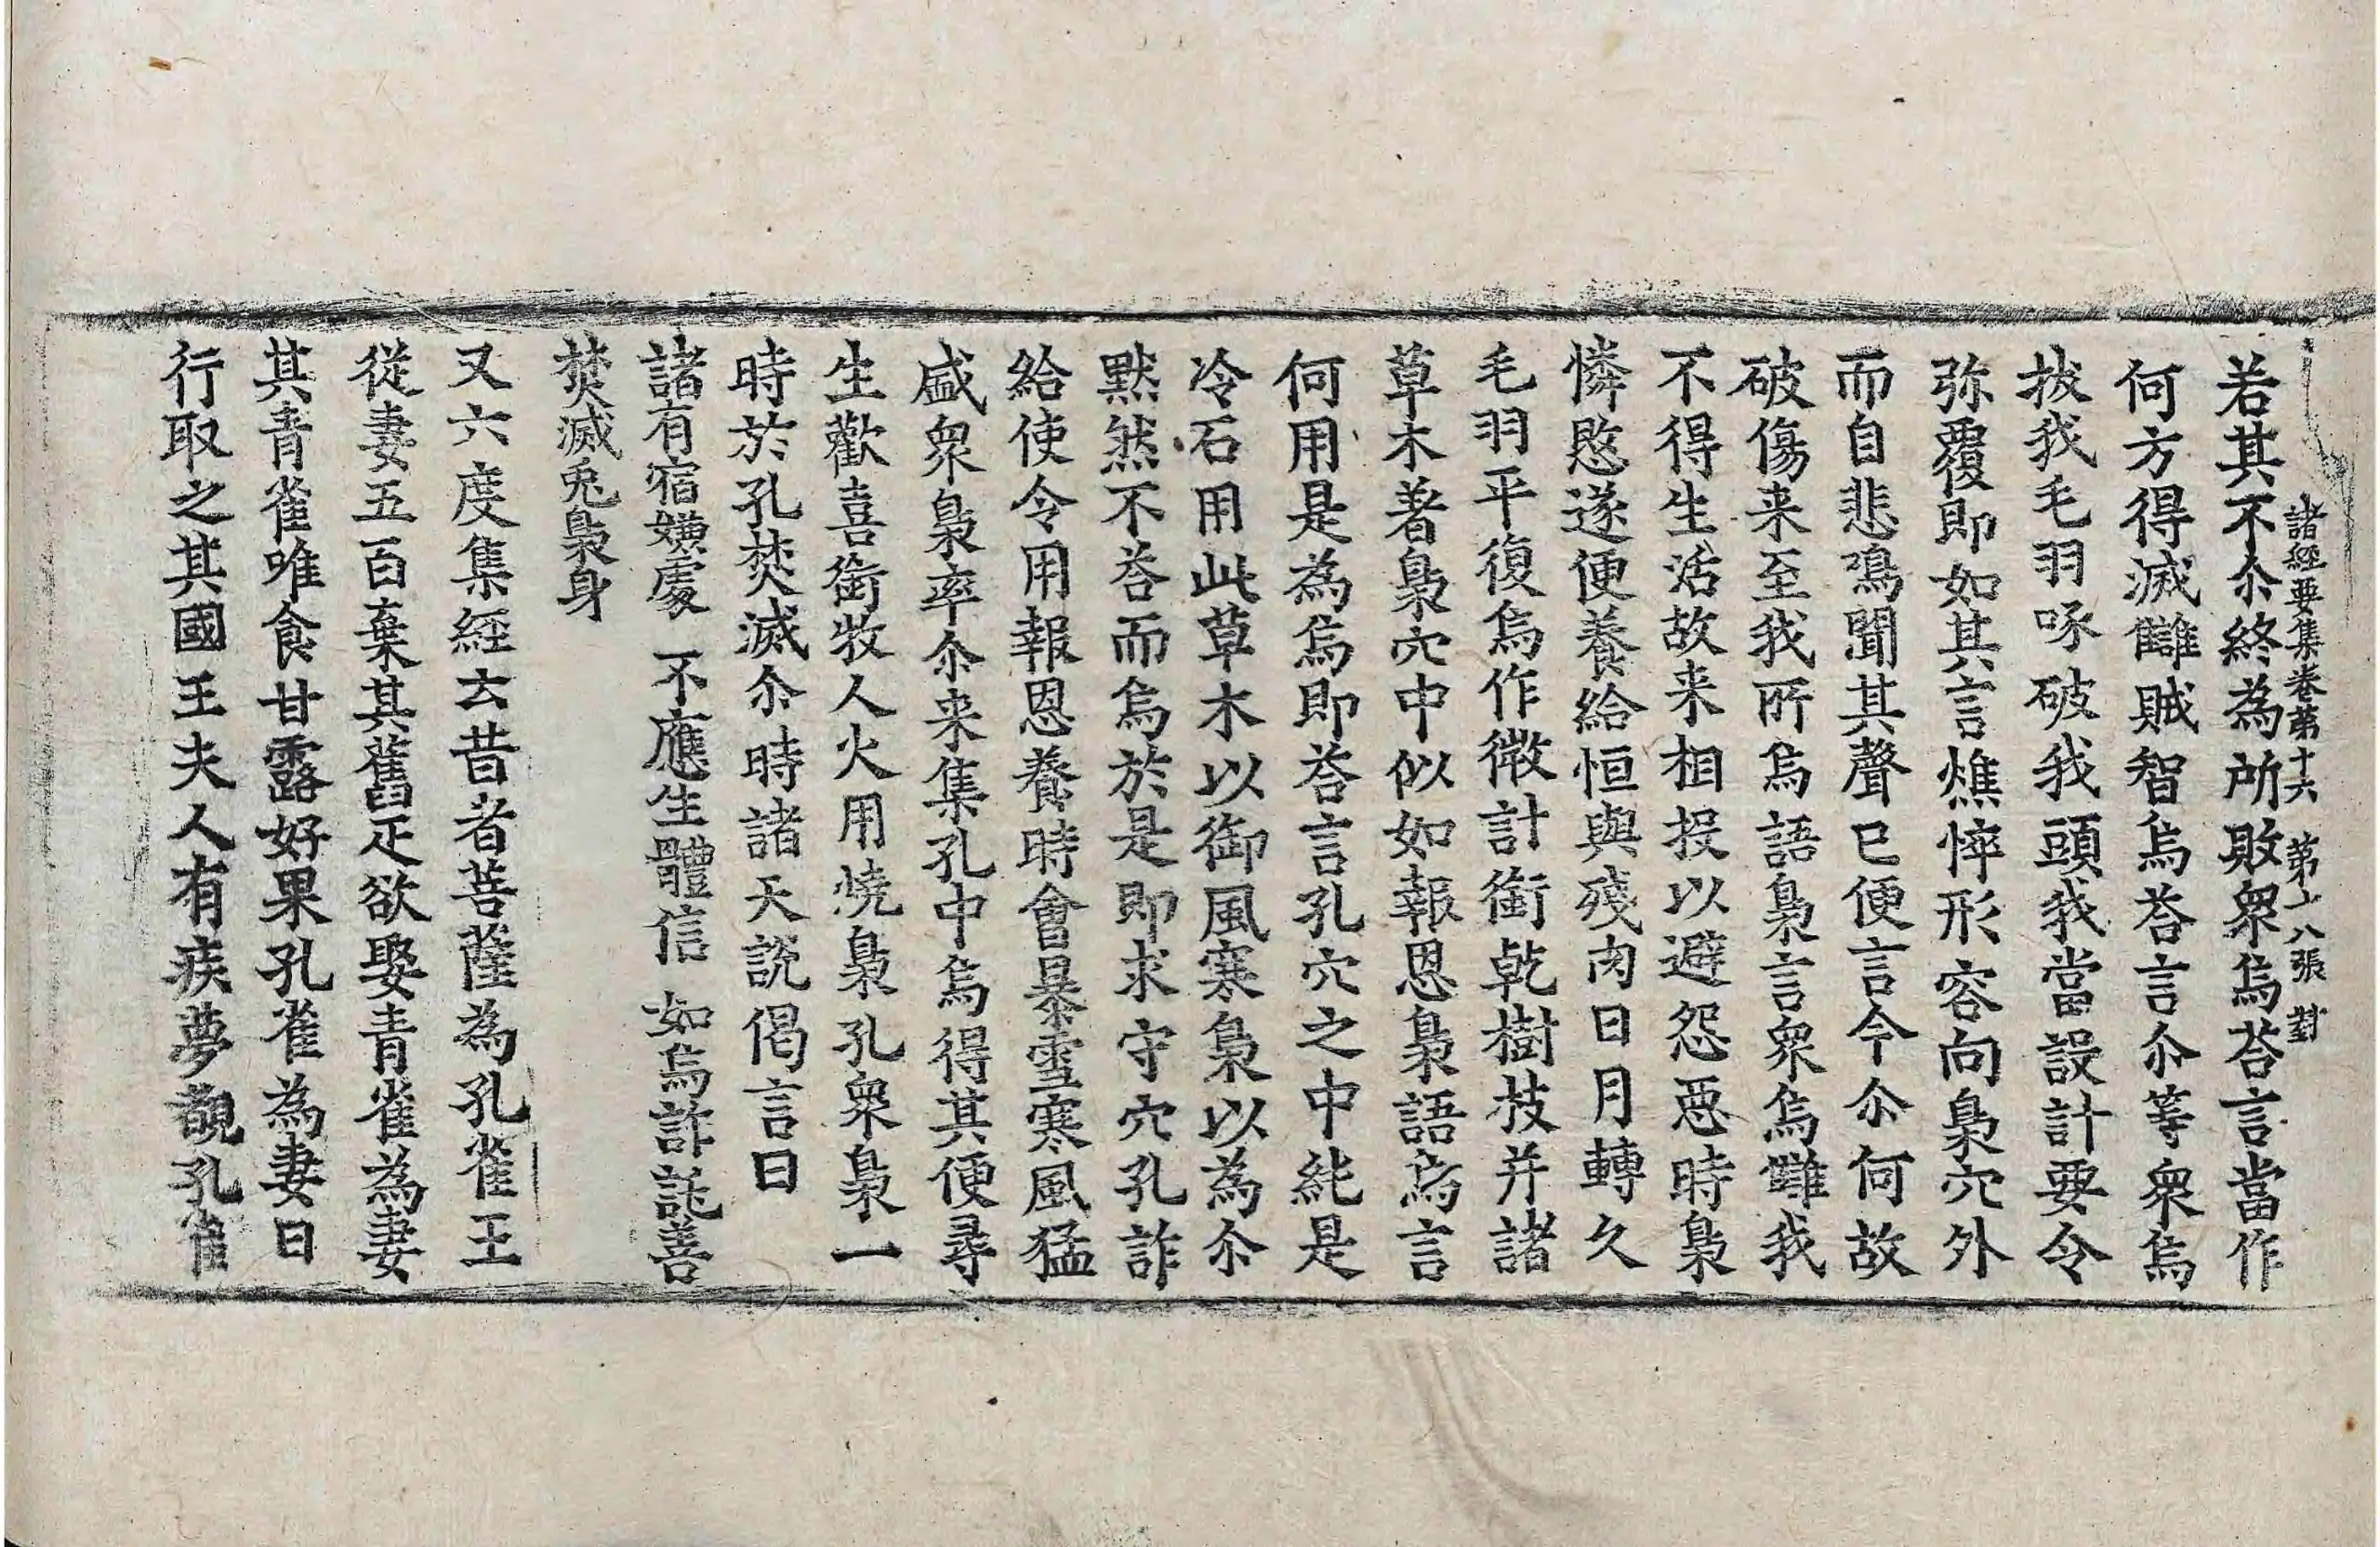 諸經要集卷第十六 第六張 對
若其不尒終為所敗衆烏荅言當作
何方得滅讎賊智烏荅言尒等衆烏
拔我毛羽啄破我頭我當設計要令
弥覆即如其言燋悴形容向梟穴外
而自悲鳴聞其聲已便言今尒何故
破傷来至我所烏語梟言衆烏讎我
不得生活故来相投以避怨惡時梟
憐愍遂便養給恒與殘肉日月轉久
毛羽平復烏作微計銜乾樹枝并諸
草木著梟穴中似如報恩梟語烏言
何用是為烏即荅言孔穴之中純是
冷石用此草木以御風寒梟以為尒
默然不荅而烏於是即求守穴孔詐
給使令用報恩養時會暴雪寒風猛
盛衆梟率尒来集孔中烏得其便尋
生歡喜銜牧人火用燒梟孔衆梟一
時於孔焚滅尒時諸天說偈言曰
諸有宿嫌處 不應生體信 如烏詐託善
焚滅兎梟身
又六度集經云昔者菩薩為孔雀王
從妻五百棄其舊疋欲娶青雀為妻
其青雀唯食甘露好果孔雀為妻日
行取之其國王夫人有疾夢覩孔雀